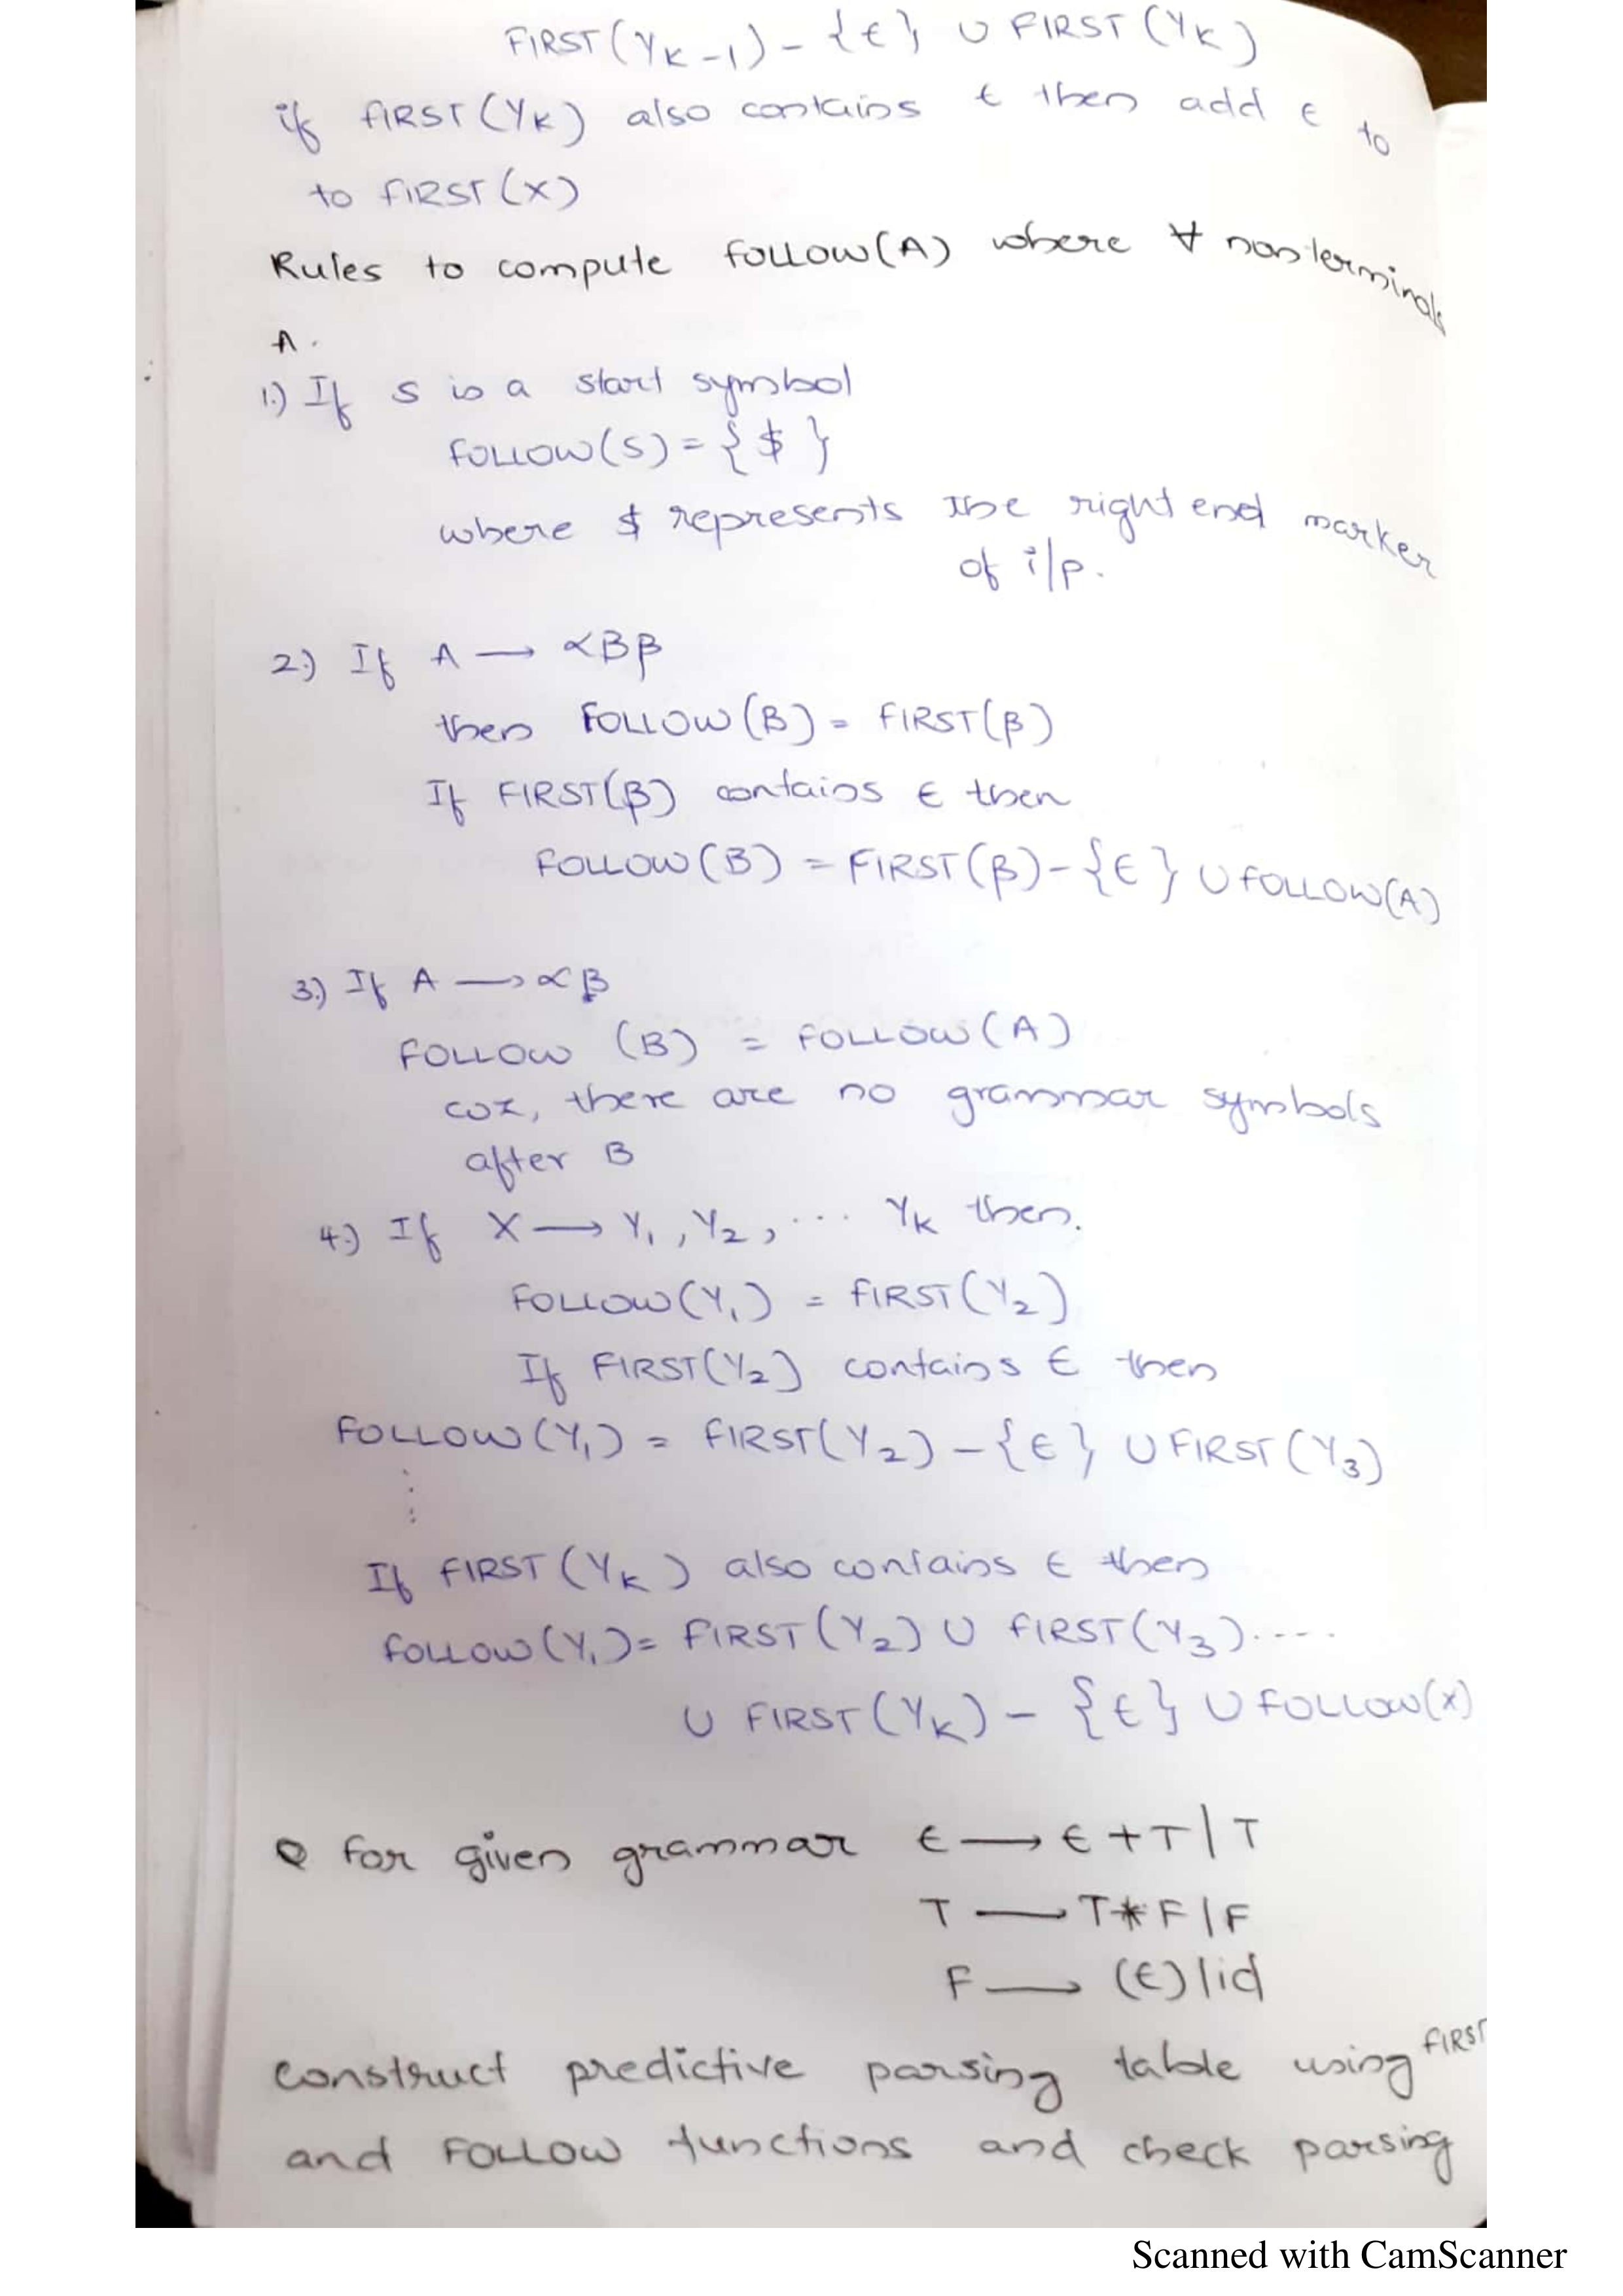 FIRST(Yk-1) - {ϵ} ∪ FIRST(Yk)
if FIRST(Yk) also contains ϵ then add ϵ to
to FIRST(X)
Rules to compute FOLLOW(A) where ∀ nonterminals
A.
1.) If S is a start symbol
FOLLOW(S) = {$}
where $ represents the right end marker
of i/p.
2.) If A → αBβ
then FOLLOW(B) = FIRST(β)
If FIRST(β) contains ϵ then
FOLLOW(B) = FIRST(β) - {ϵ} ∪ FOLLOW(A)
3.) If A → αB
FOLLOW (B) = FOLLOW(A)
coz, there are no grammar symbols
after B
4.) If X → Y1, Y2, ... Yk then.
FOLLOW(Y1) = FIRST(Y2)
If FIRST(Y2) contains ϵ then
FOLLOW(Y1) = FIRST(Y2) - {ϵ} ∪ FIRST(Y3)
⋮
If FIRST(Yk) also contains ϵ then
FOLLOW(Y1) = FIRST(Y2) ∪ FIRST(Y3).----
∪ FIRST(Yk) - {ϵ} ∪ FOLLOW(X)
Q for given grammar E → E+T|T
T → T*F|F
F → (E)|id
construct predictive parsing table using FIRST
and FOLLOW functions and check parsing
Scanned with CamScanner